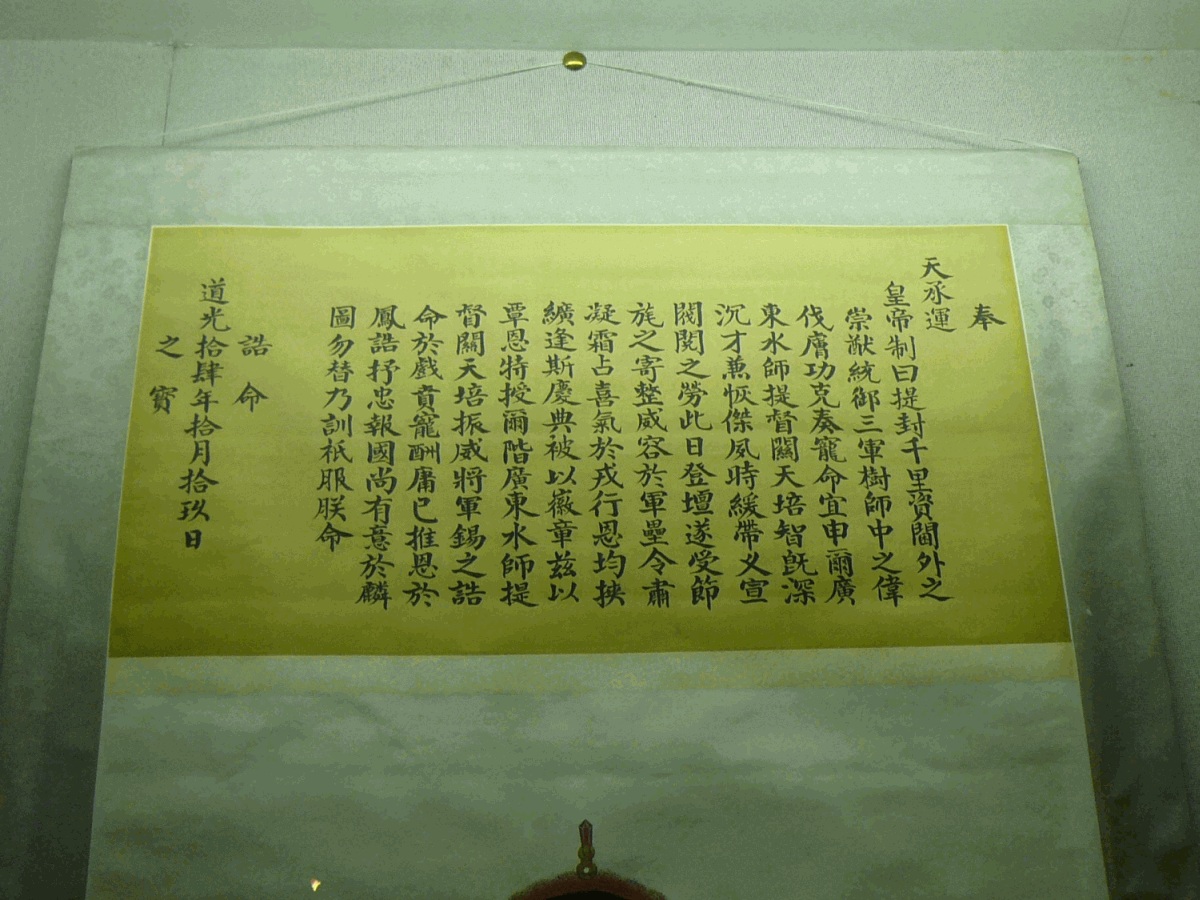 奉
天承運
皇帝制曰提封千里資閫外之
崇猷統御三軍樹師中之偉
伐膚功克奏寵命宜申爾廣
東水師提督關天培智旣深
沉才兼恢傑夙時緩帶乂宣
閥閱之勞此日登壇遂受節
旄之寄整威容於軍壘令肅
凝霜占喜氣於戎行恩均挾
纊逢斯慶典被以徽章茲以
覃恩特授爾階廣東水師提
督關天培振威將軍錫之誥
命於戲賁寵酬庸已推恩於
鳳誥抒忠報國尚有意於麟
圖勿替乃訓祇服朕命
誥命
道光拾肆年拾月拾玖日
之寶